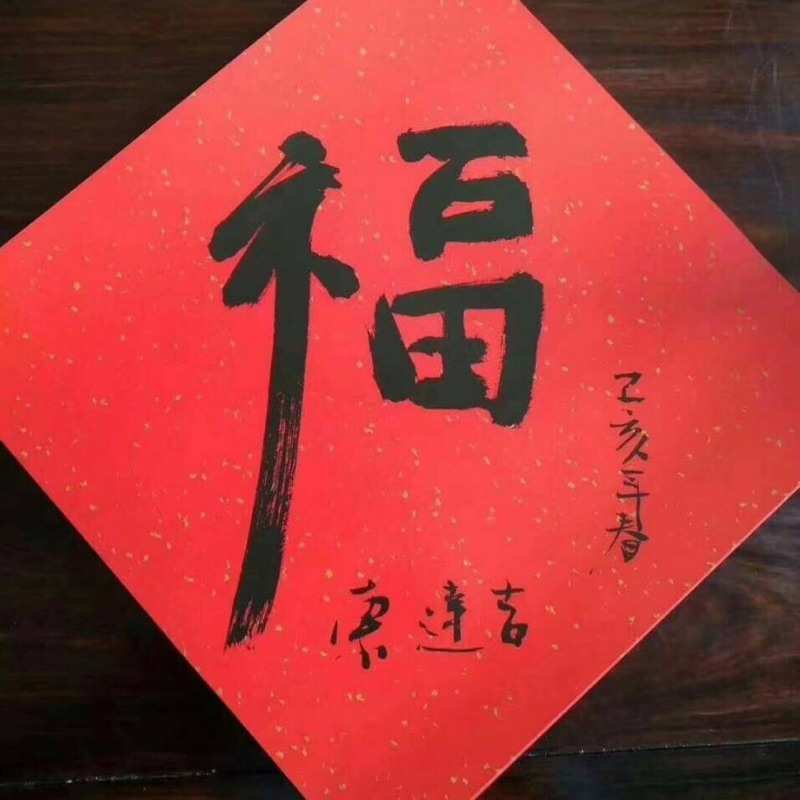 福
己亥年春
達吉